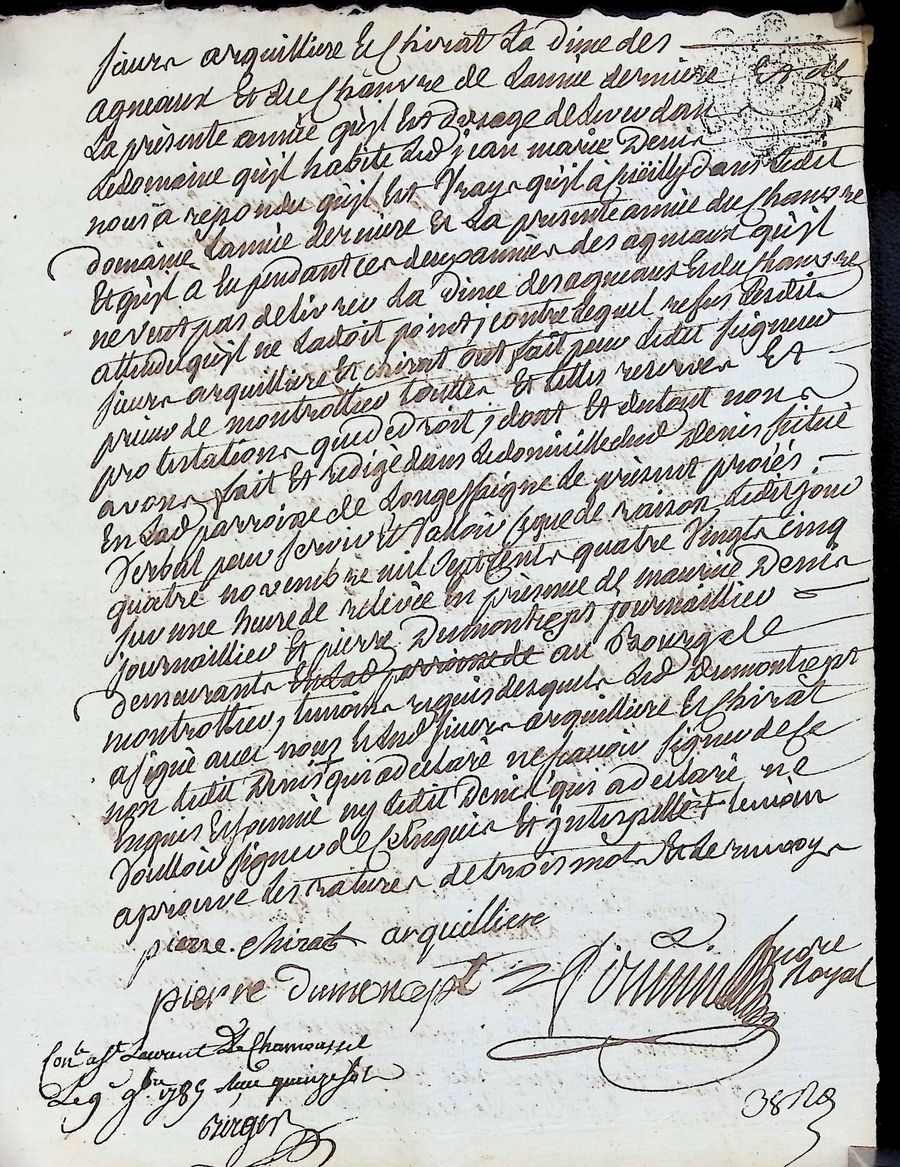 sieurs arquilliere et Chirat La dime des
agneaux et du Chanvre de Lannée derniere et de
La présente année qu'jl est d'usage de Lever dans
Le domaine qu'jl habite Led jean marie Denis
nous a repondu qu'jl est Vray qu'jl à ceuilly dans Ledit
domaine Lannée derniere et La presente année du Chanvre
et qu'jl a eu pendant ces deux années des agneaux qu'jl
ne veut pas delivrer La dime des agneaux et du Chanvre
attendu qu'jl ne La doit point, contre lequel refus Lesdits
sieurs arquilliere et chirat ont fait pour Ledit seigneur
prieur de montrottier touttes et telles reserves et
protestations que de droit, dont et du tout nous
avons fait et redigé dans Le domicille dud Denis situé
en Lad parroisse de Longessaigne Le présent procés
Verbal pour servir et valloir ce que de raison Ledit jour
quatre novembre mil sept cents quatre vingts cinq
sur une heure de relevée en présence de maurice Denis
journaillier et pierre Dumontcept journaillier
demeurants en Lad parroisse de au Bourg de
montrottier, temoins requis desquels Led Dumontcept
a signé avec nous et Lesd sieurs arquilliere et Chirat
non Ledit Denis qui a declaré ne savoir signer de ce
enquis et sommé ny Ledit Denis qui a declaré ne
Voulloir signer de ce enquis et jnterpellé + temoin
aprouvé Les ratures de trois mots et Le renvoy
pierre. Chirat arquilliere
pierre dumoncept
notre Royal
Con.lé a St Laurent De Chamousset
Le 9 9bre 1785 Reçu quinze sols